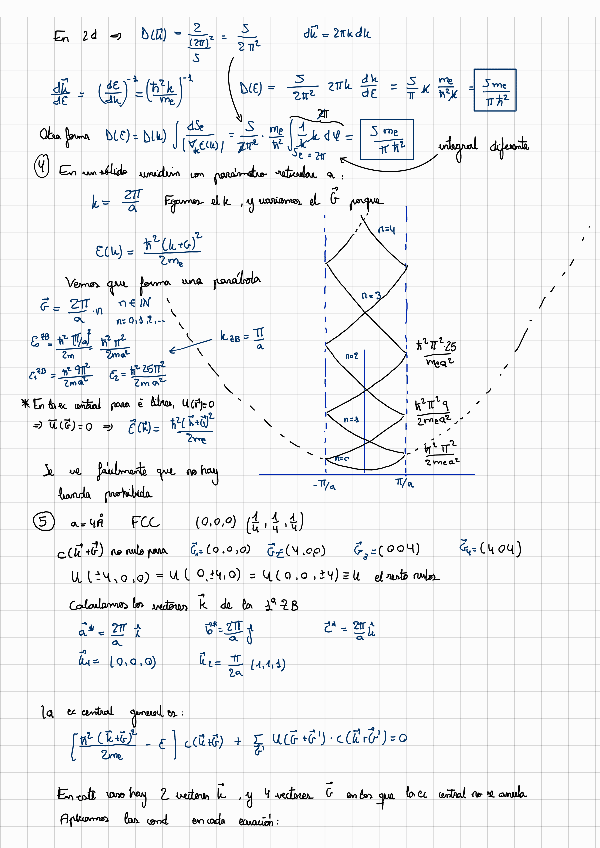 En 2d ⇒ D(k⃗) = 2/((2π)²/S) = S/2π² dk⃗ = 2πk dk
dk⃗/dE = (dE/dk)⁻¹ = (ħ²k/me)⁻¹ D(E) = S/2π² 2πk dk/dE = S/π k me/ħ²k = S me/πħ²
Otra forma D(E) = D(k) ∫ dSe/|∇k E(k)| = S/2π² · me/ħ² ∫ 1/k k dφ = S me/πħ² integral diferente
2π
Se = 2π
④ En un sólido unidim con parámetro reticular a:
k = 2π/a Fijamos el k, y variamos el G⃗ porque
E(k) = ħ²(k+G)²/2me
Vemos que forma una parábola
G⃗ = 2π/a · n n ∈ IN
n = 0,1,2,...
E₀ᶻᴮ = ħ²(π/a)²/2m = ħ²π²/2ma² k ZB = π/a
E₁ᶻᴮ = ħ²9π²/2ma² E₂ = ħ²25π²/2ma²
* En la ec central para é libres, U(r⃗)=0
⇒ U(G⃗) = 0 ⇒ E(k⃗) = ħ²(k⃗+G⃗)²/2me
Se ve fácilmente que no hay
banda prohibida
n=4
n=3
n=2
n=1
n=0
ħ²π²25/2mea²
ħ²π²9/2mea²
ħ²π²/2mea²
-π/a π/a
⑤ a = 4Å FCC (0,0,0) (1/4, 1/4, 1/4)
c(k⃗+G⃗) no nulo para G⃗₁=(0,0,0) G⃗₂=(4,0,0) G⃗₃=(004) G⃗₄=(404)
U(±4,0,0) = U(0,±4,0) = U(0,0,±4) ≡ U el resto nulos
Calculamos los vectores k⃗ de la 1ª ZB
a⃗* = 2π/a î b⃗* = 2π/a ĵ c⃗* = 2π/a k̂
k⃗₁ = (0,0,0) k⃗₂ = π/2a (1,1,1)
la ec central general es:
[ħ²(k⃗+G⃗)²/2me - E] c(k⃗+G⃗) + Σ G' U(G⃗+G⃗')·c(k⃗+G⃗') = 0
En este caso hay 2 vectores k⃗, y 4 vectores G⃗ en los que la ec central no se anula
Aplicamos las cond en cada ecuación: